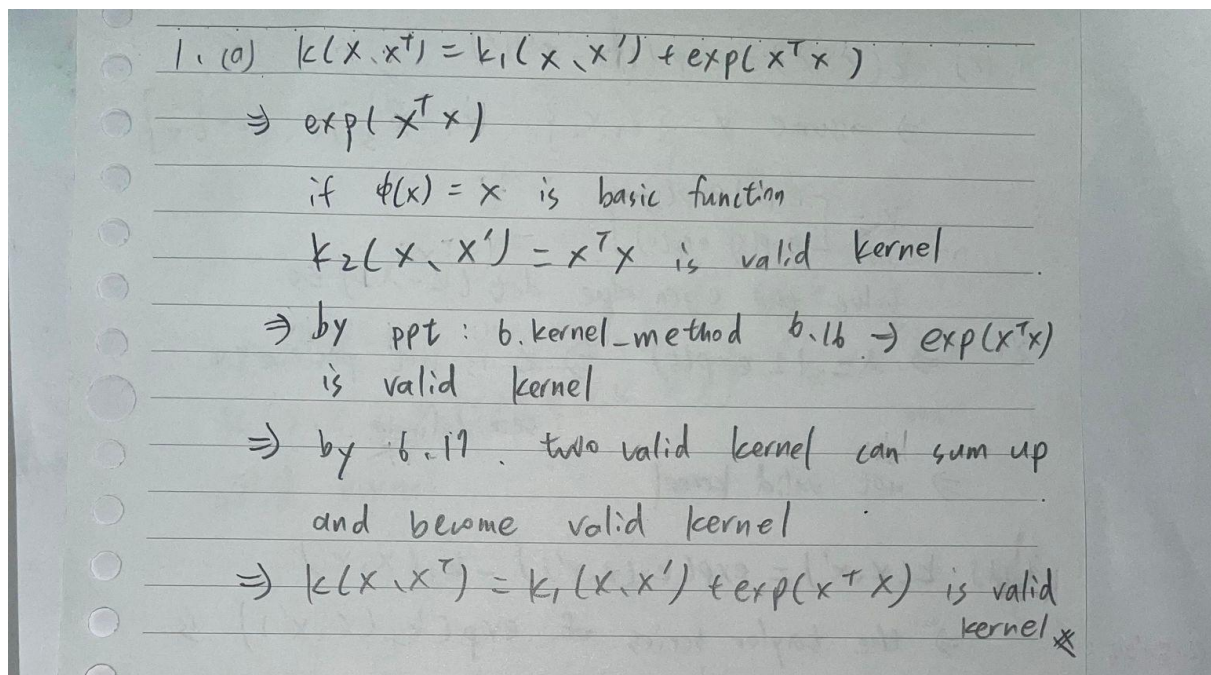 1. (a) k(x、x^T) = k₁(x、x') + exp(x^T x)
⇒ exp(x^T x)
if φ(x) = x is basic function
k₂(x、x') = x^T x is valid kernel
⇒ by ppt : 6.kernel_method 6.16 → exp(x^T x)
is valid kernel
⇒ by 6.17. two valid kernel can sum up
and become valid kernel
⇒ k(x、x^T) = k₁(x、x') + exp(x^T x) is valid
kernel ※